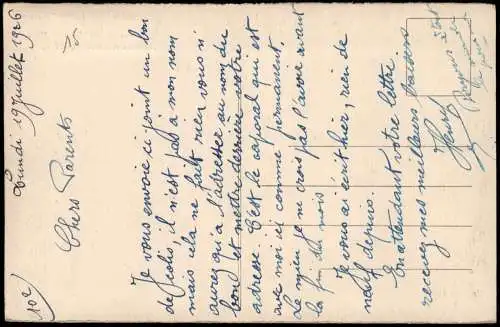 Lundi 19 Juillet 1926
Chers Parents
Je vous envoie ci joint un bon
de colis, il n'est pas à mon nom
mais cela ne fait rien vous n'
aurez qu'à l'adresser au nom du
bon et mettre derrière votre
adresse. C'est le caporal qui est
avec moi ici comme permanent.
Le mien je ne crois pas l'avoir avant
la fin du mois
Je vous ai écrit hier, rien de
neuf depuis.
En attendant votre lettre
recevez mes meilleurs baisers
Henri
Bonjour à tout
102